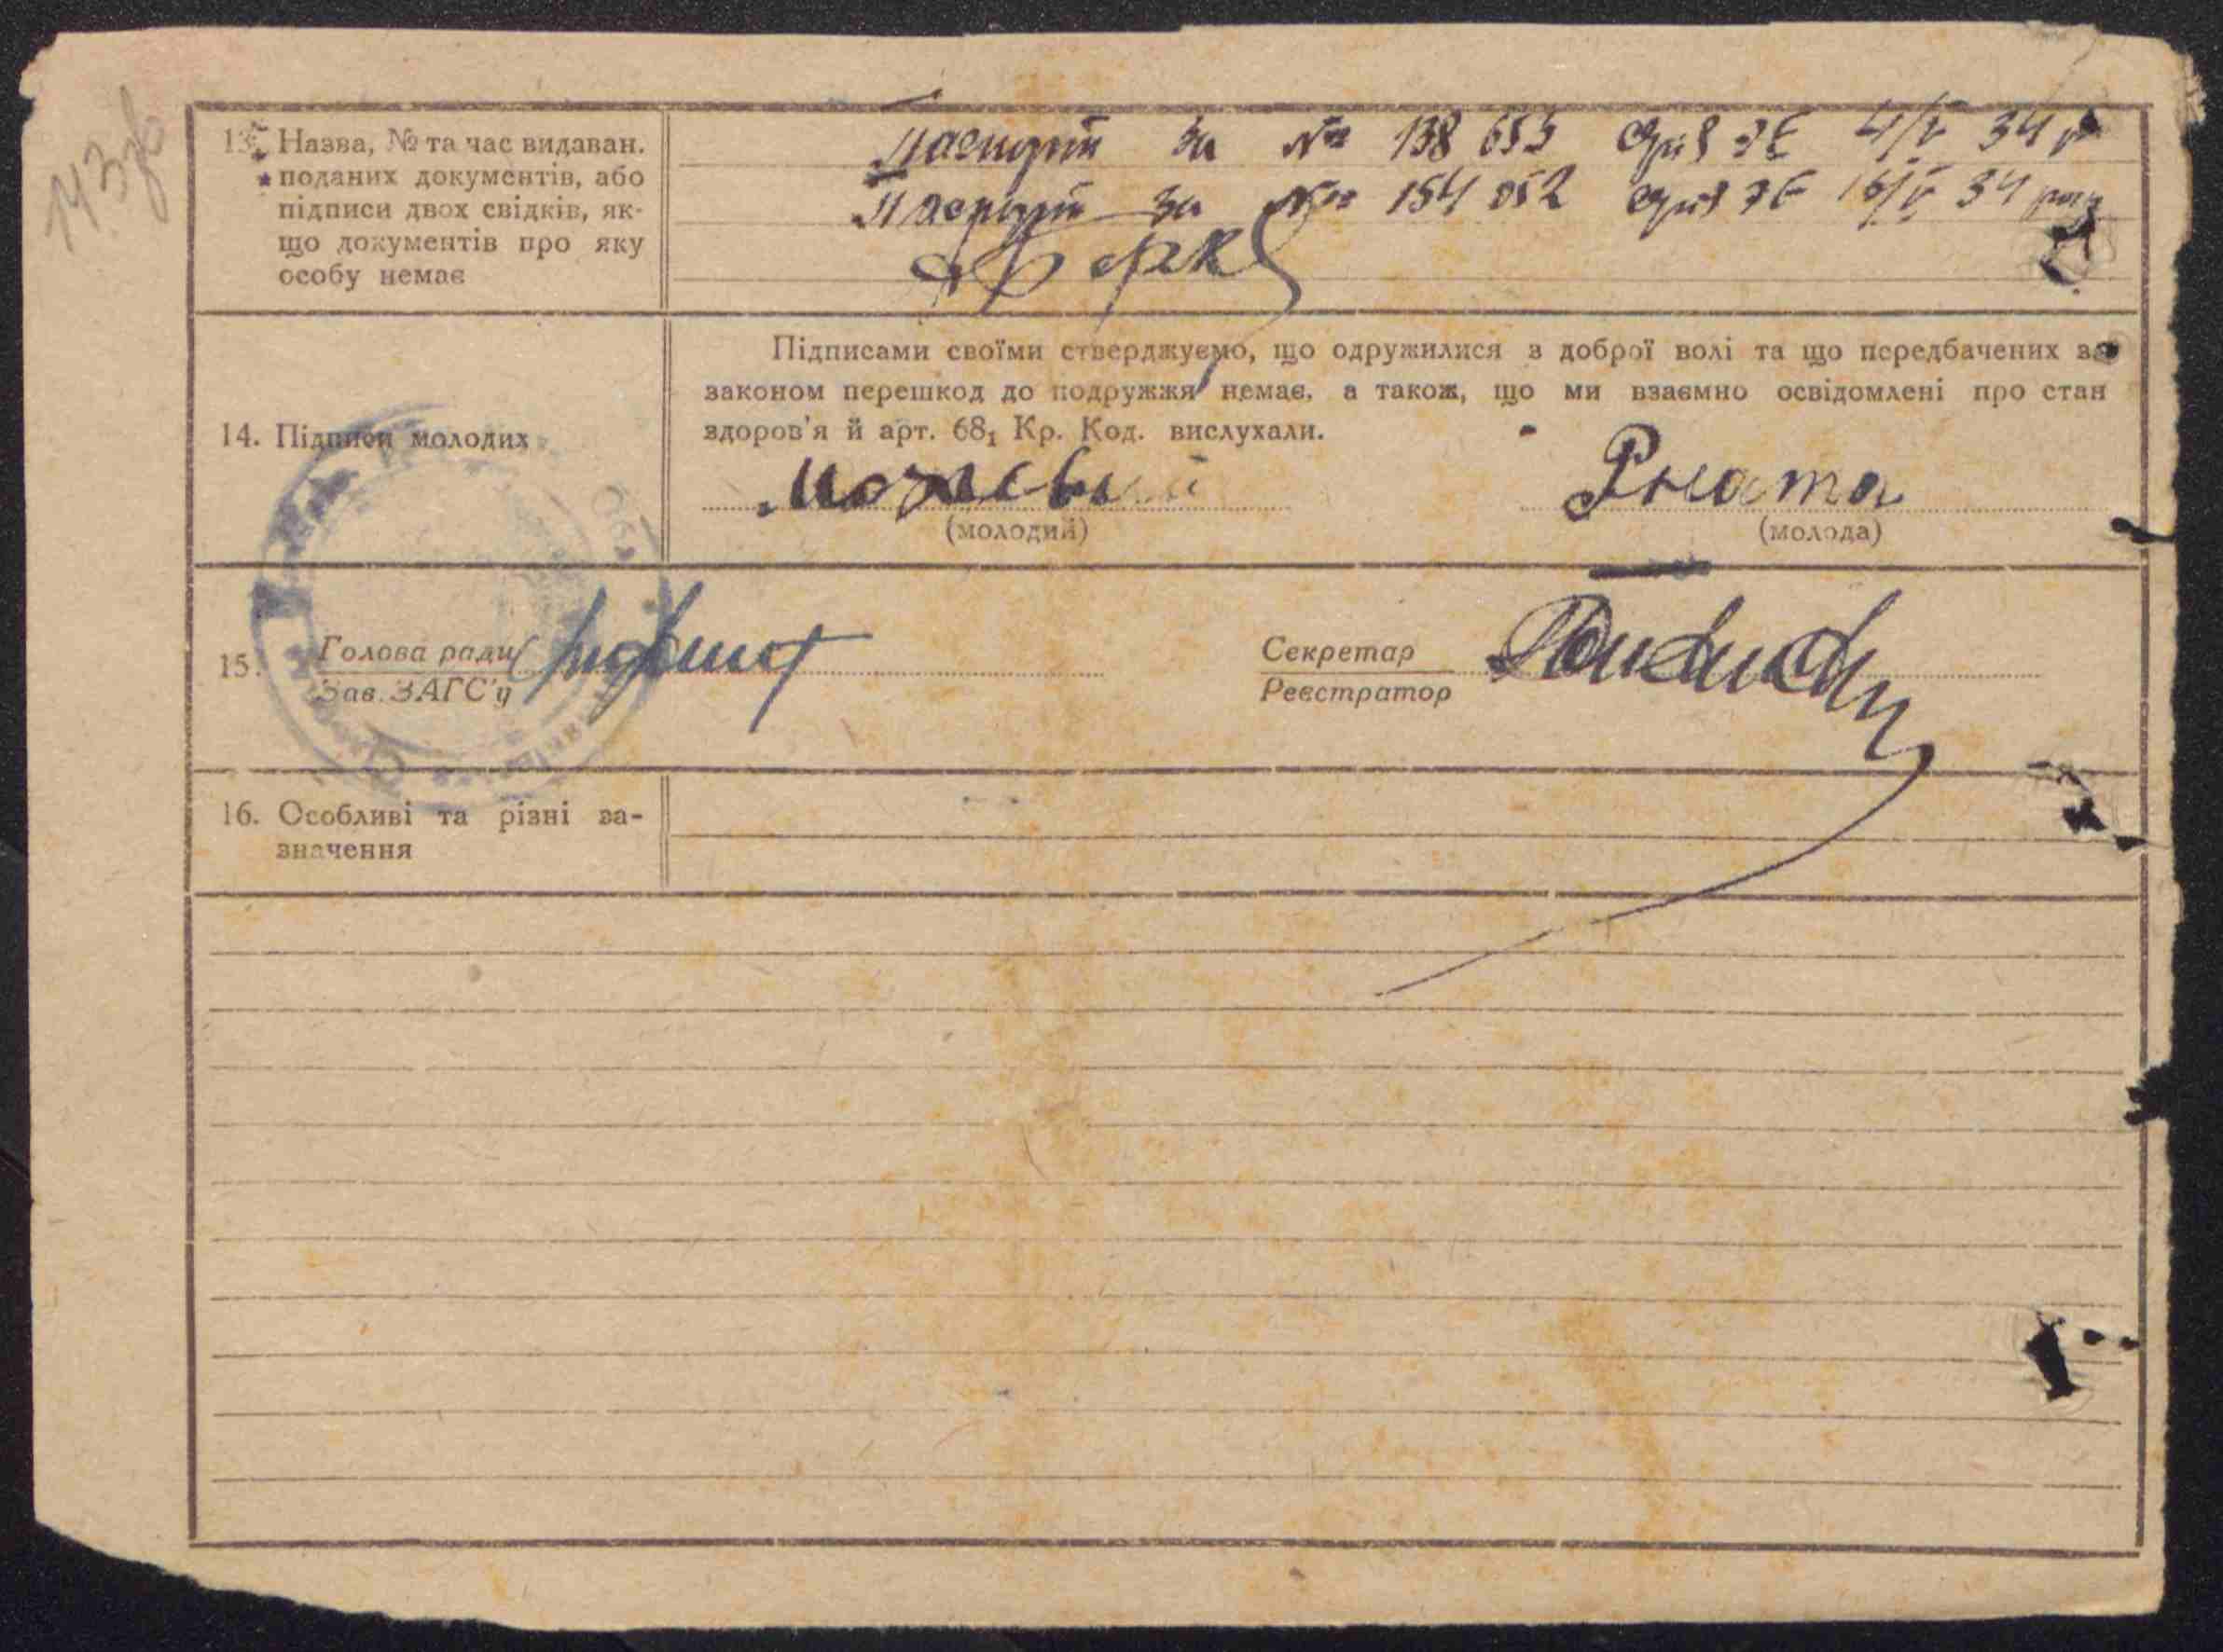 143 зв
13. Назва, № та час видаван.
поданих документів, або
підписи двох свідків, як-
що документів про яку
особу немає
Паспорт за № 138 653 серія ЭЕ 4/V 34 р
Паспорт за № 154 052 серія ЭЕ 16/V 34 року
14. Підписи молодих
Підписами своїми стверджуємо, що одружилися з доброї волі та що передбачених за
законом перешкод до подружжя немає, а також, що ми взаємно освідомлені про стан
здоров'я й арт. 68₁ Кр. Код. вислухали.
(молодий)
Рната
(молода)
15. Голова ради
Зав. ЗАГС'у
Секретар
Реєстратор
16. Особливі та різні за-
значення